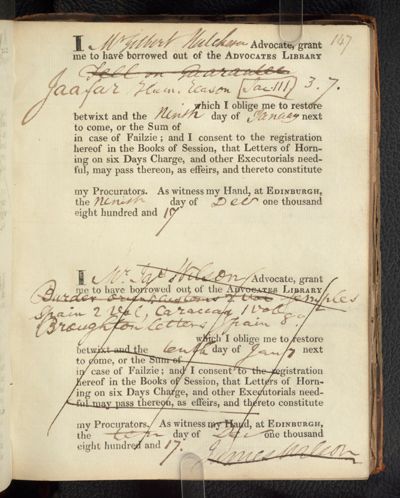 147
I Mr Gilbert Hutcheson Advocate, grant
me to have borrowed out of the ADVOCATES LIBRARY
Fell on Guarantee
Jaafar, Hum. Reason 3. 7.
which I oblige me to restore
betwixt and the Ninth day of January next
to come, or the Sum of
in case of Failzie; and I consent to the registration
hereof in the Books of Session, that Letters of Horn-
ing on six Days Charge, and other Executorials need-
ful, may pass thereon, as effeirs, and thereto constitute
my Procurators. As witness my Hand, at EDINBURGH,
the Ninth day of Decr one thousand
eight hundred and 17
I Mr Jas Wilson Advocate, grant
me to have borrowed out of the ADVOCATES LIBRARY
Burder Temples
Spain 2 Vol, Caraccas 1 Vol
Broughton letters Spain 8
which I oblige me to restore
betwixt and the tenth day of Jany next
to come, or the Sum of
in case of Failzie; and I consent to the registration
hereof in the Books of Session, that Letters of Horn-
ing on six Days Charge, and other Executorials need-
ful may pass thereon, as effeirs, and thereto constitute
my Procurators. As witness my Hand, at EDINBURGH,
the day of one thousand
eight hundred and 17.
James Wilson